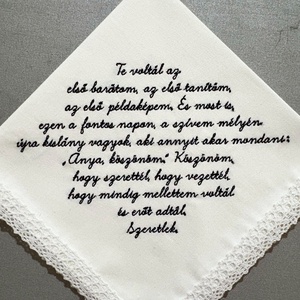 Te voltál az
első barátom, az első tanítóm,
az első példaképem. És most is,
ezen a fontos napon, a szívem mélyén
újra kislány vagyok, aki annyit akar mondani:
„Anya, köszönöm.” Köszönöm,
hogy szerettél, hogy vezettél,
hogy mindig mellettem voltál
és erőt adtál.
Szeretlek.